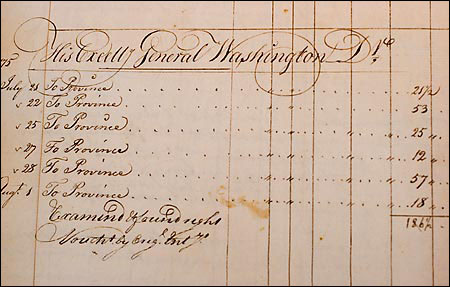 His Excelly General Washington Dr
75
July 21 To Province 21½
" 22 To Province 53
" 25 To Province " " " 25 "
" 27 To Province " " " 12 "
" 28 To Province " " " 57 "
Augt. 1 To Province " " " 18 "
186½
Examind & found right
by